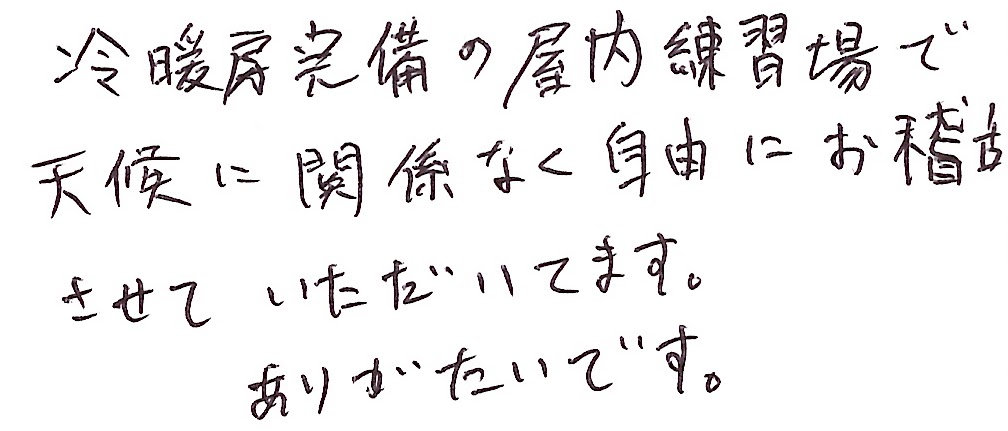 冷暖房完備の屋内練習場で
天候に関係なく自由にお稽古
させていただいてます。
ありがたいです。